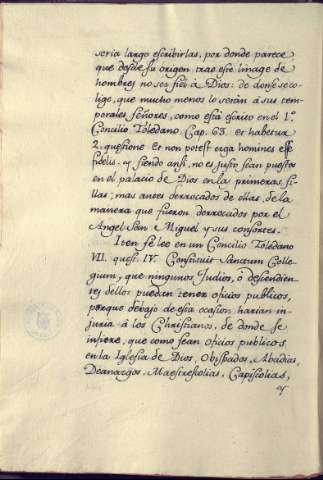 seria largo escribirlas, por donde parece
que desde su origen trae este linage de
hombres no ser fiel à Dios: de donde se co-
lige, que mucho menos lo serán à sus tem-
porales señores, como está escrito en el 1.º
Concilio Toledano Cap. 63. et habetur
2. questione Et non potest erga homines esse
fidelis. y siendo ansi, no es justo sean puestos
en el palacio de Dios en las primeras si-
llas; mas antes derrocados de ellas, de la
manera que fueron derrocados por el
Angel San Miguel y sus consortes.
Iten se leo en un Concilio Toledano
VII. quest. IV. Constituit Sanctum Colle-
gium, que ningunos Judios, ò descendien-
tes dellos puedan tener oficios publicos,
porque debajo de esta ocasion harian in-
juria à los Christianos, de donde se
infiere, que como sean oficios publicos
en la Iglesia de Dios, Obispados, Abadias,
Deanazgos, Maestrescolias, Capiscolias,